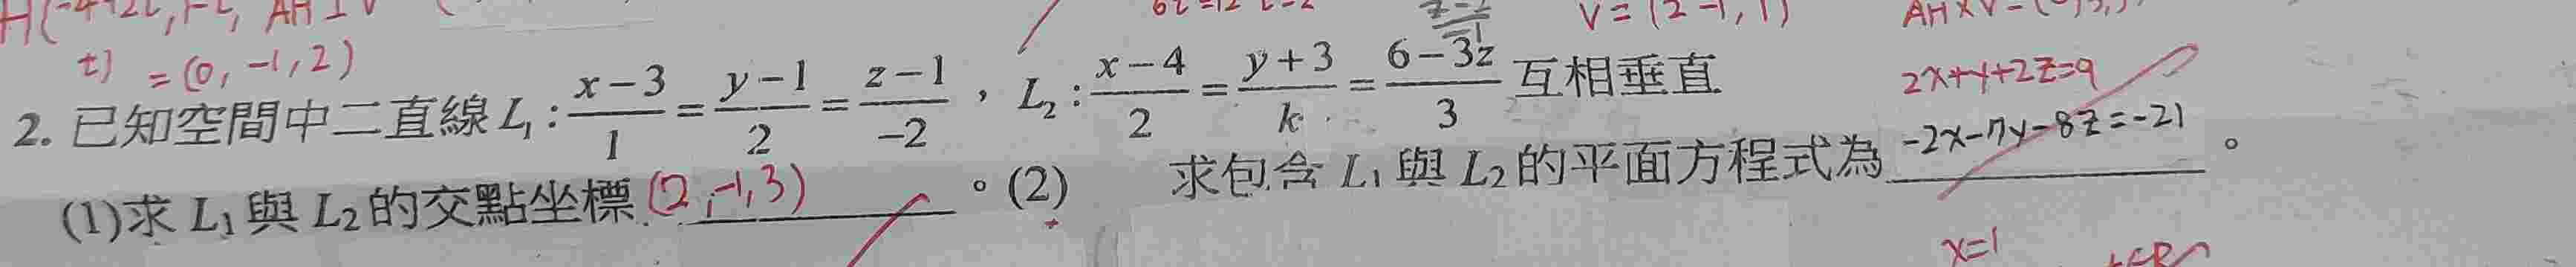 6t=12 t=2
V=(2-1,1)
t) =(0,-1,2)
2. 已知空間中二直線 L₁: x-3/1 = y-1/2 = z-1/-2 , L₂: x-4/2 = y+3/k = 6-3z/3 互相垂直
2x+y+2z=9
(1)求 L₁ 與 L₂ 的交點坐標 (2,-1,3) 。(2) 求包含 L₁ 與 L₂ 的平面方程式為 -2x-7y-8z=-21 。
x=1